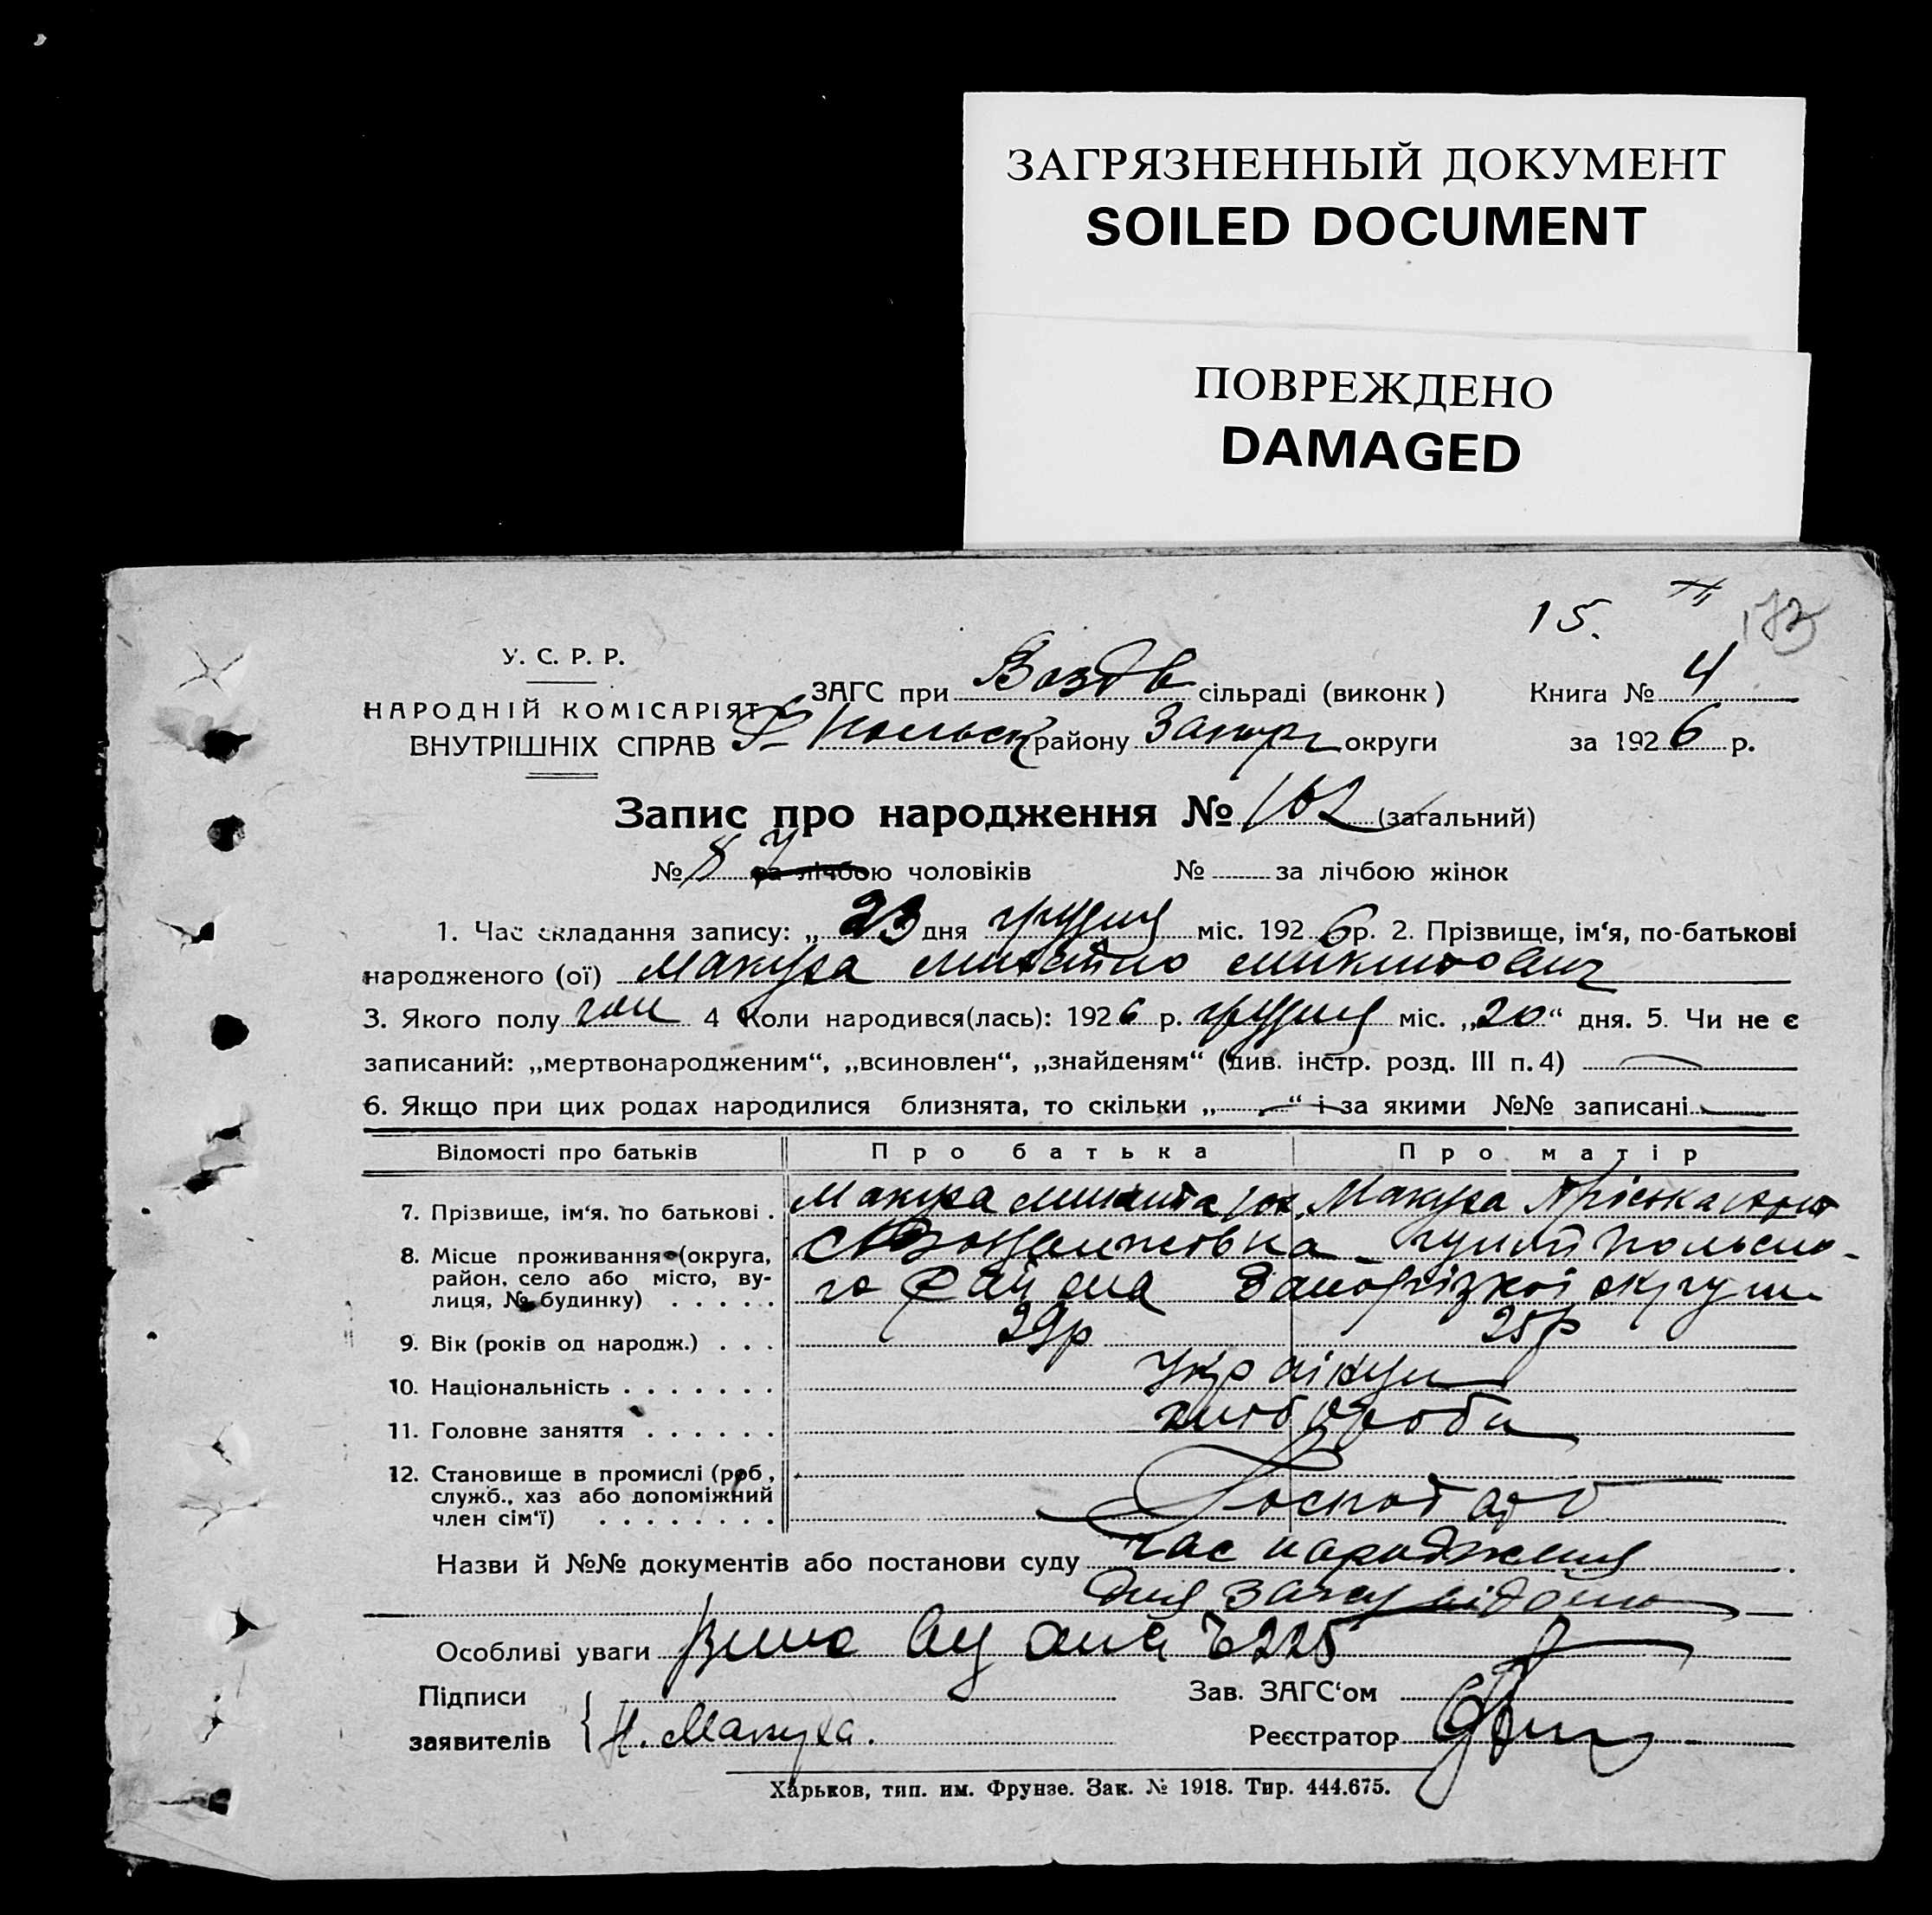 ЗАГРЯЗНЕННЫЙ ДОКУМЕНТ
SOILED DOCUMENT
ПОВРЕЖДЕНО
DAMAGED
15.
173
У. С. Р. Р.
НАРОДНІЙ КОМІСАРІЯТ
ВНУТРІШНІХ СПРАВ
ЗАГС при Воздв сільраді (виконк)
Книга № 4
району Запор округи
за 1926 р.
Запис про народження № 162 (загальний)
№ 87 за лічбою чоловіків № за лічбою жінок
1. Час складання запису: „23 дня грудня міс. 1926 р. 2. Прізвище, ім‘я, по-батькові
народженого (ої) Макуха Микитович
3. Якого полу чол 4 Коли народився(лась): 1926 р. грудня міс. „20“ дня. 5. Чи не є
записаний: „мертвонародженим“, „всиновлен“, „знайденям“ (див. інстр. розд. III п. 4)
6. Якщо при цих родах народилися близнята, то скільки „ “ і за якими №№ записані
Відомості про батьків Про батька Про матір
7. Прізвище, ім‘я, по батькові . Макуха Микита Макуха Пріська
8. Місце проживання (округа,
район, село або місто, ву-
лиця, № будинку) . . . . .
го Района Запорізкої округи
9. Вік (років од народж.) . . . 29р 25р
10. Національність . . . . . . . україн
11. Головне заняття . . . . . . хлібороби
12. Становище в промислі (роб,
служб., хаз або допоміжний
член сім‘ї) . . . . . . . . Господарі
Назви й №№ документів або постанови суду час народження
для загсу відомо
Особливі уваги
Підписи
заявителів
Н. Макуха.
Зав. ЗАГС‘ом
Реєстратор
Харьков, тип. им. Фрунзе. Зак. № 1918. Тир. 444.675.